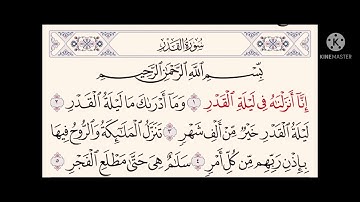 سُورَةُ القَدْرِ
KINEMASTER
بِسْمِ اللَّهِ الرَّحْمَٰنِ الرَّحِيمِ
إِنَّا أَنزَلْنَٰهُ فِى لَيْلَةِ الْقَدْرِ ١ وَمَا أَدْرَىٰكَ مَا لَيْلَةُ الْقَدْرِ ٢
لَيْلَةُ الْقَدْرِ خَيْرٌ مِّنْ أَلْفِ شَهْرٍ ٣ تَنَزَّلُ الْمَلَٰٓئِكَةُ وَالرُّوحُ فِيهَا
بِإِذْنِ رَبِّهِم مِّن كُلِّ أَمْرٍ ٤ سَلَٰمٌ هِىَ حَتَّىٰ مَطْلَعِ الْفَجْرِ ٥